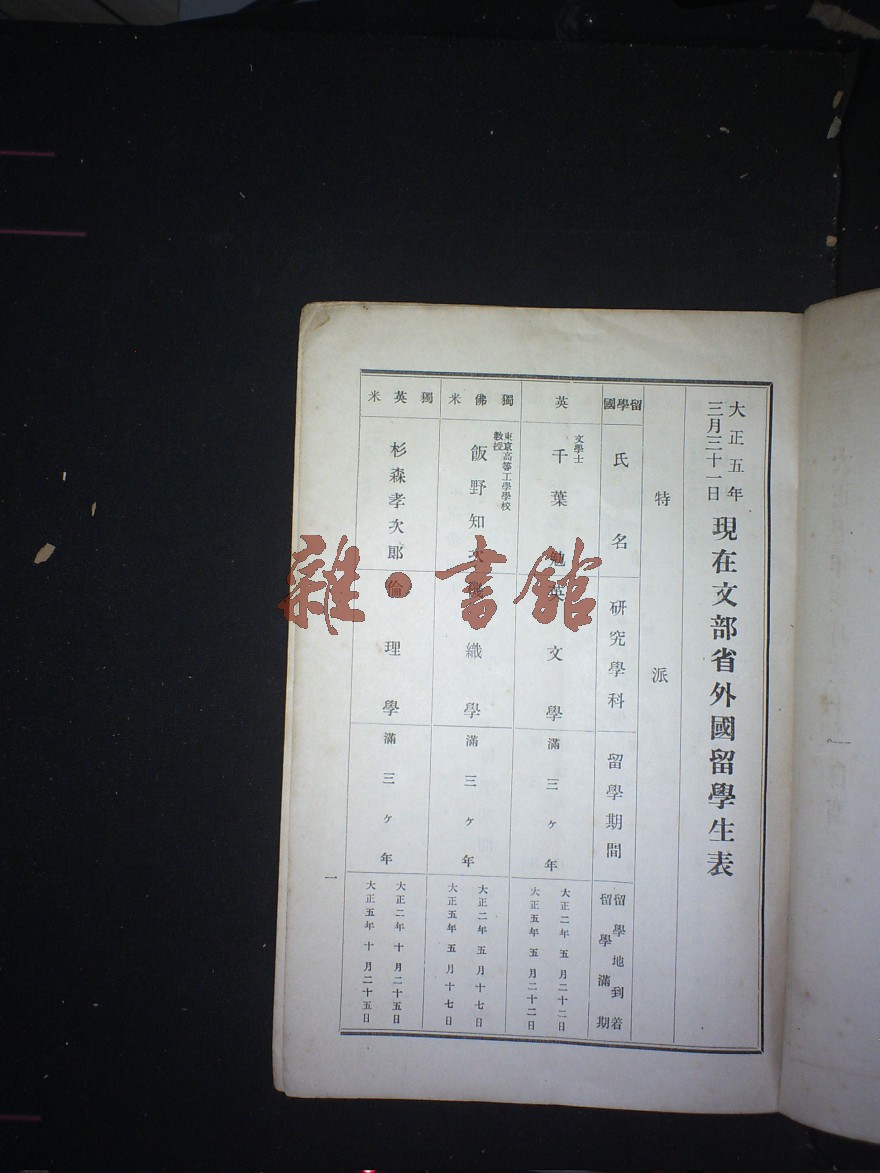 大正五年
三月三十一日
現在文部省外國留學生表
特派
留學國
氏名
研究學科
留學期間
留學地到着
留學滿期
英
文學士
千葉勉
英文學
滿三ヶ年
大正二年五月二十二日
大正五年五月二十二日
獨佛米
東京高等工學學校
教授
飯野知次
機織學
滿三ヶ年
大正二年五月十七日
大正五年五月十七日
獨英米
杉森孝次郎
倫理學
滿三ヶ年
大正二年十月二十五日
大正五年十月二十五日
一
雜·書館